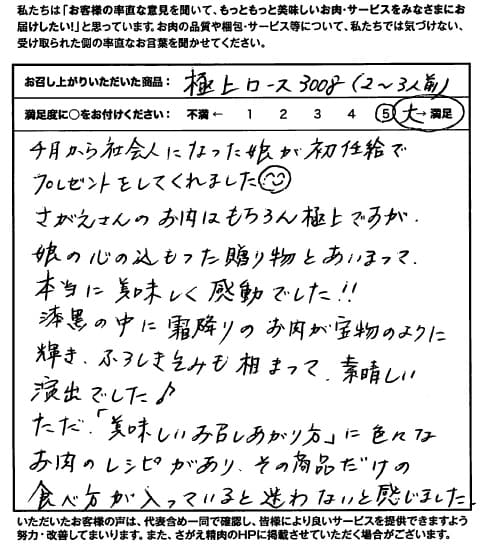 私たちは「お客様の率直な意見を聞いて、もっともっと美味しいお肉・サービスをみなさまにお
届けしたい!」と思っています。お肉の品質や梱包・サービス等について、私たちでは気づけない、
受け取られた側の率直なお言葉を聞かせてください。
お召し上がりいただいた商品: 極上ロース300g(2〜3人前)
満足度に○をお付けください: 不満 ← 1 2 3 4 5 大→ 満足
4月から社会人になった娘が初任給で
プレゼントをしてくれました
さがえさんのお肉はもちろん極上ですが、
娘の心の込もった贈り物とあいまって、
本当に美味しく感動でした!!
漆黒の中に霜降りのお肉が宝物のように
輝き、ふろしき包みも相まって、素晴しい
演出でした♪
ただ、「美味しいお召しあがり方」に色々な
お肉のレシピがあり、その商品だけの
食べ方が入っていると迷わないと感じました
いただいたお客様の声は、代表含め一同で確認し、皆様により良いサービスを提供できますよう
努力・改善してまいります。また、さがえ精肉のHPに掲載させていただく場合がございます。